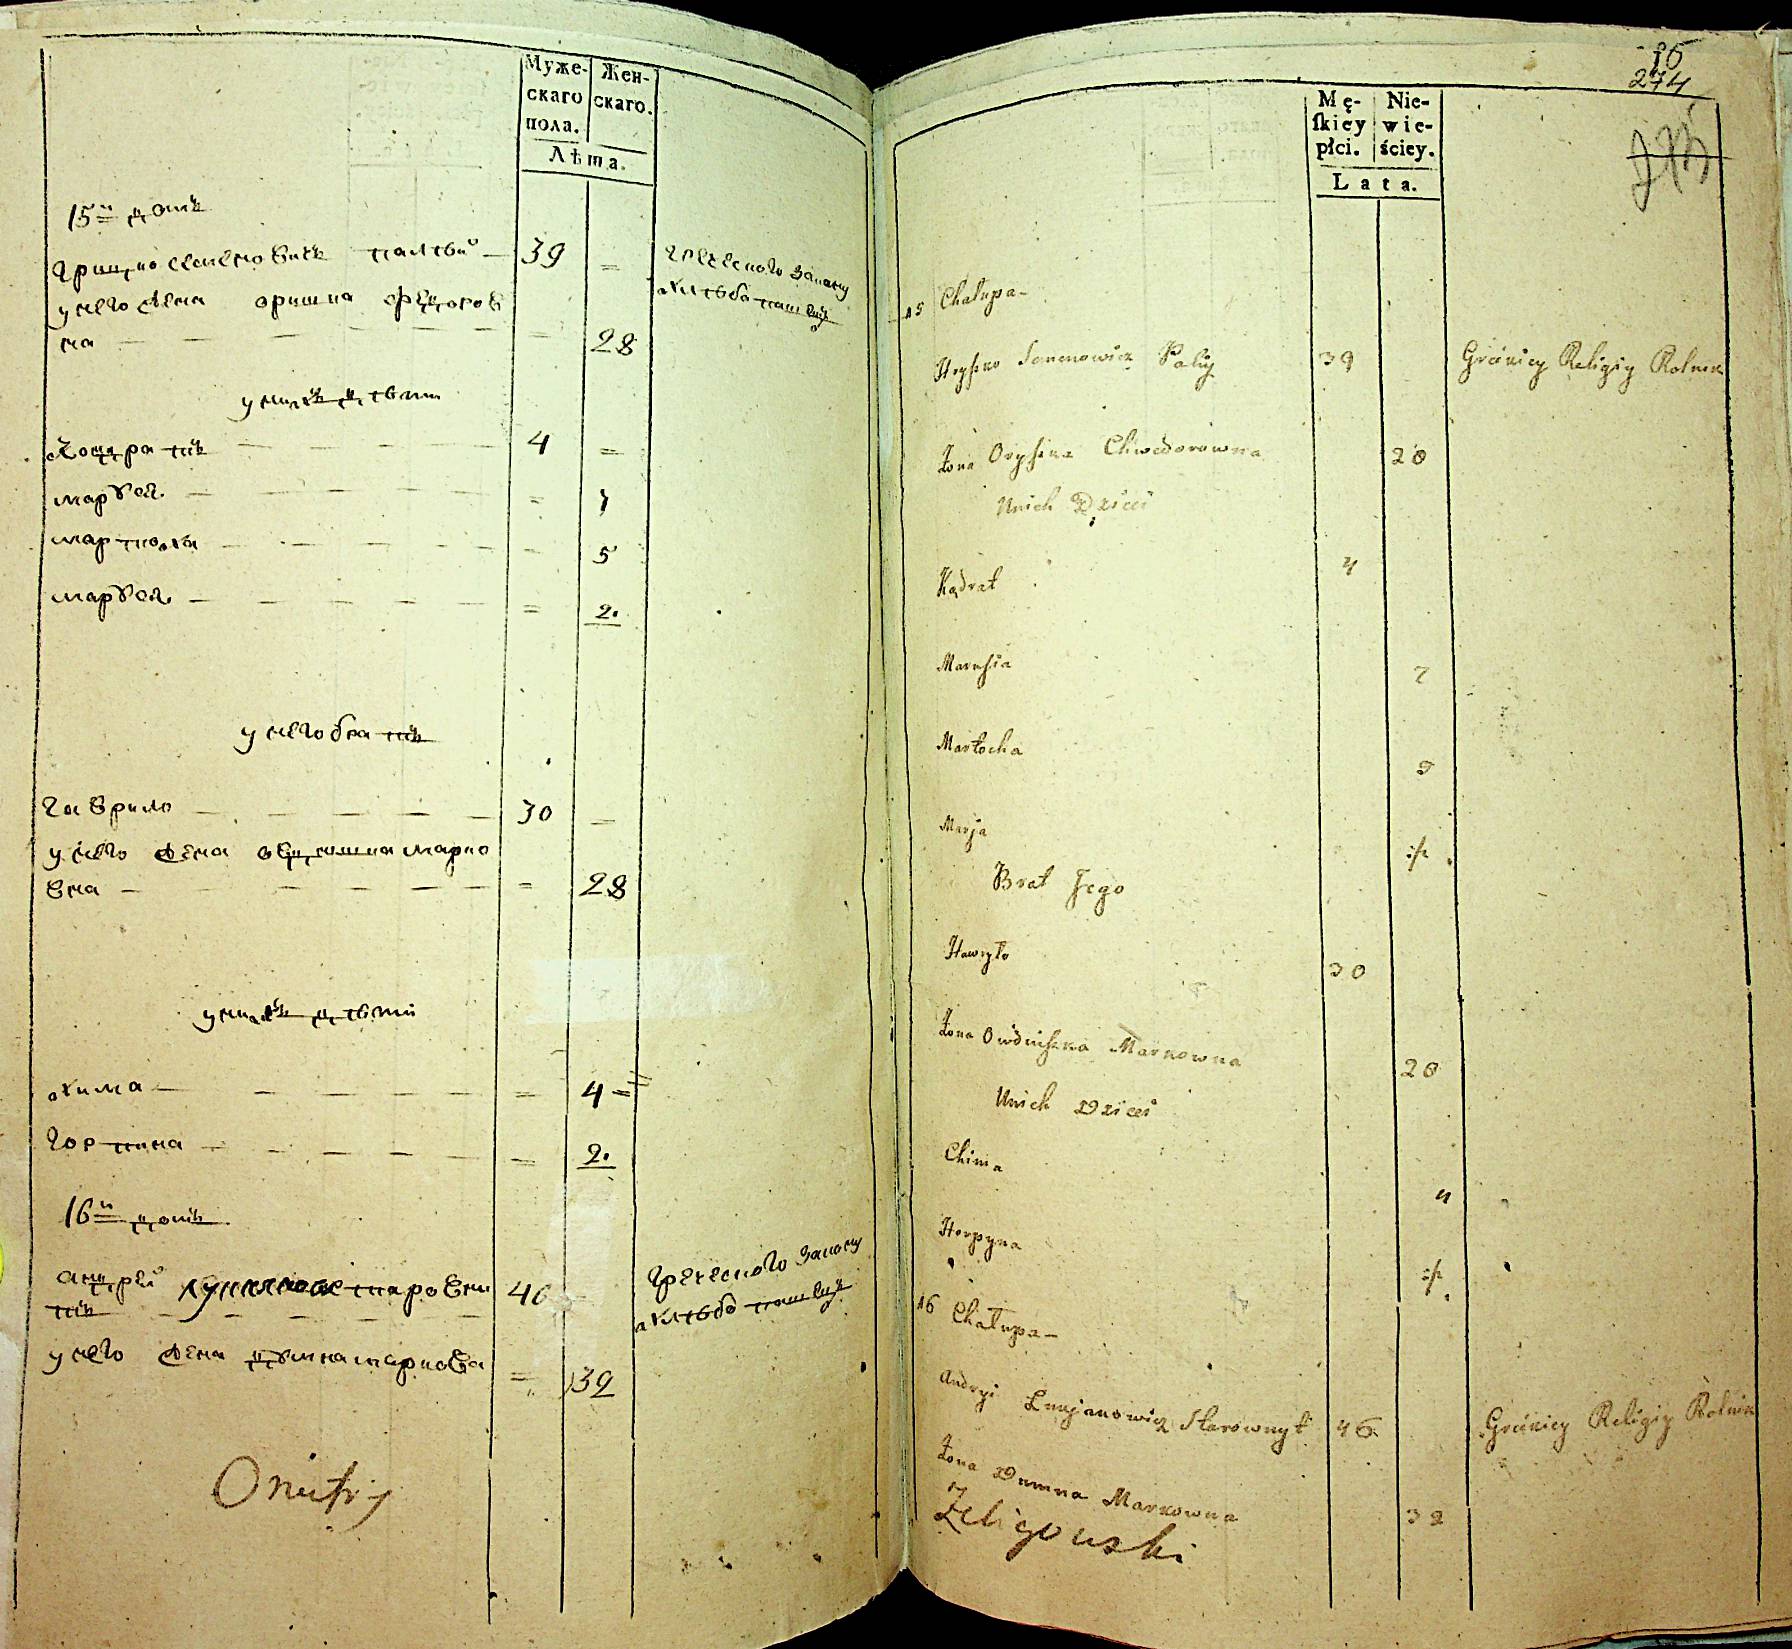 Муже-
скаго
пола.
Жен-
скаго.
Лѣта.
15й домъ
грицко семеновичъ палѣй 39 =
греческого закону
хлѣбопашецъ
у него жена оришка хведоров
на = 28
у нихъ дѣти
кондратъ 4 =
маруся = 7
мартоха = 5
маруся = 2.
у него братъ
гаврило 30
у него жена овдюшка марко
вна = 28
у нихъ дѣти
хима = 4 =
горпина = 2.
16й домъ
андрей
греческого закону
хлѣбопашецъ
у него жена думка маркова = 39
Onufry
16
274
Mę-
ſkiey
płci.
Nie-
wie-
ściey.
Lata.
15 Chałupa-
Hryſzko Semenowicz Paliy 39 Gréckiey Religiy Rolnik
Żona Orysſka Chwedorowna 28
Unich Dzieci
Kądrat 4
Marusia 7
Martocha 5
Marja 2
Brat Jego
Hawryło 30
Żona Owdiuſzka Markowna 28
Unich Dzieci
Chima 4
Horpyna 2
16 Chałupa-
Andryi Łukjanowicz Starownyt 46 Gréckiey Religiy Rolnik
Żona Dumna Markowna 39
Zeligowski